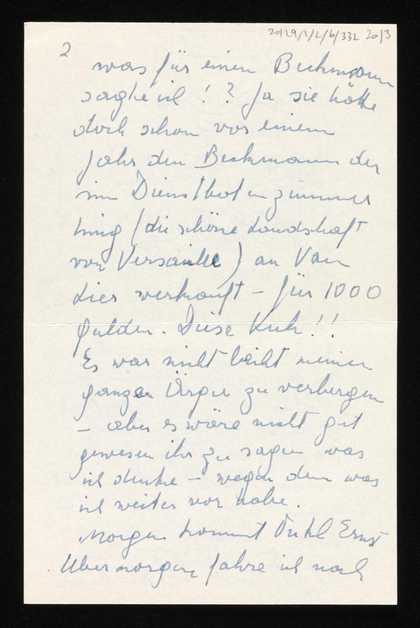 20/29/1/2/6/332 2o/3
2
was für einen Beckmann
sagte ich !? Ja sie hätte
doch schon vor einem
Jahr den Beckmann der
im Dienstboten zimmer
hing (die schöne Landschaft
von Versaille) an Van
Lier verkauft – für 1000
gulden. Diese Kuh!!
Es war nicht leicht meinen
ganzen Ärger zu verbergen
– aber es wäre nicht gut
gewesen ihr zu sagen was
ich denke – wegen dem was
ich weiter vor habe.
Morgen kommt Onkel Ernst
Übermorgen fahre ich nach